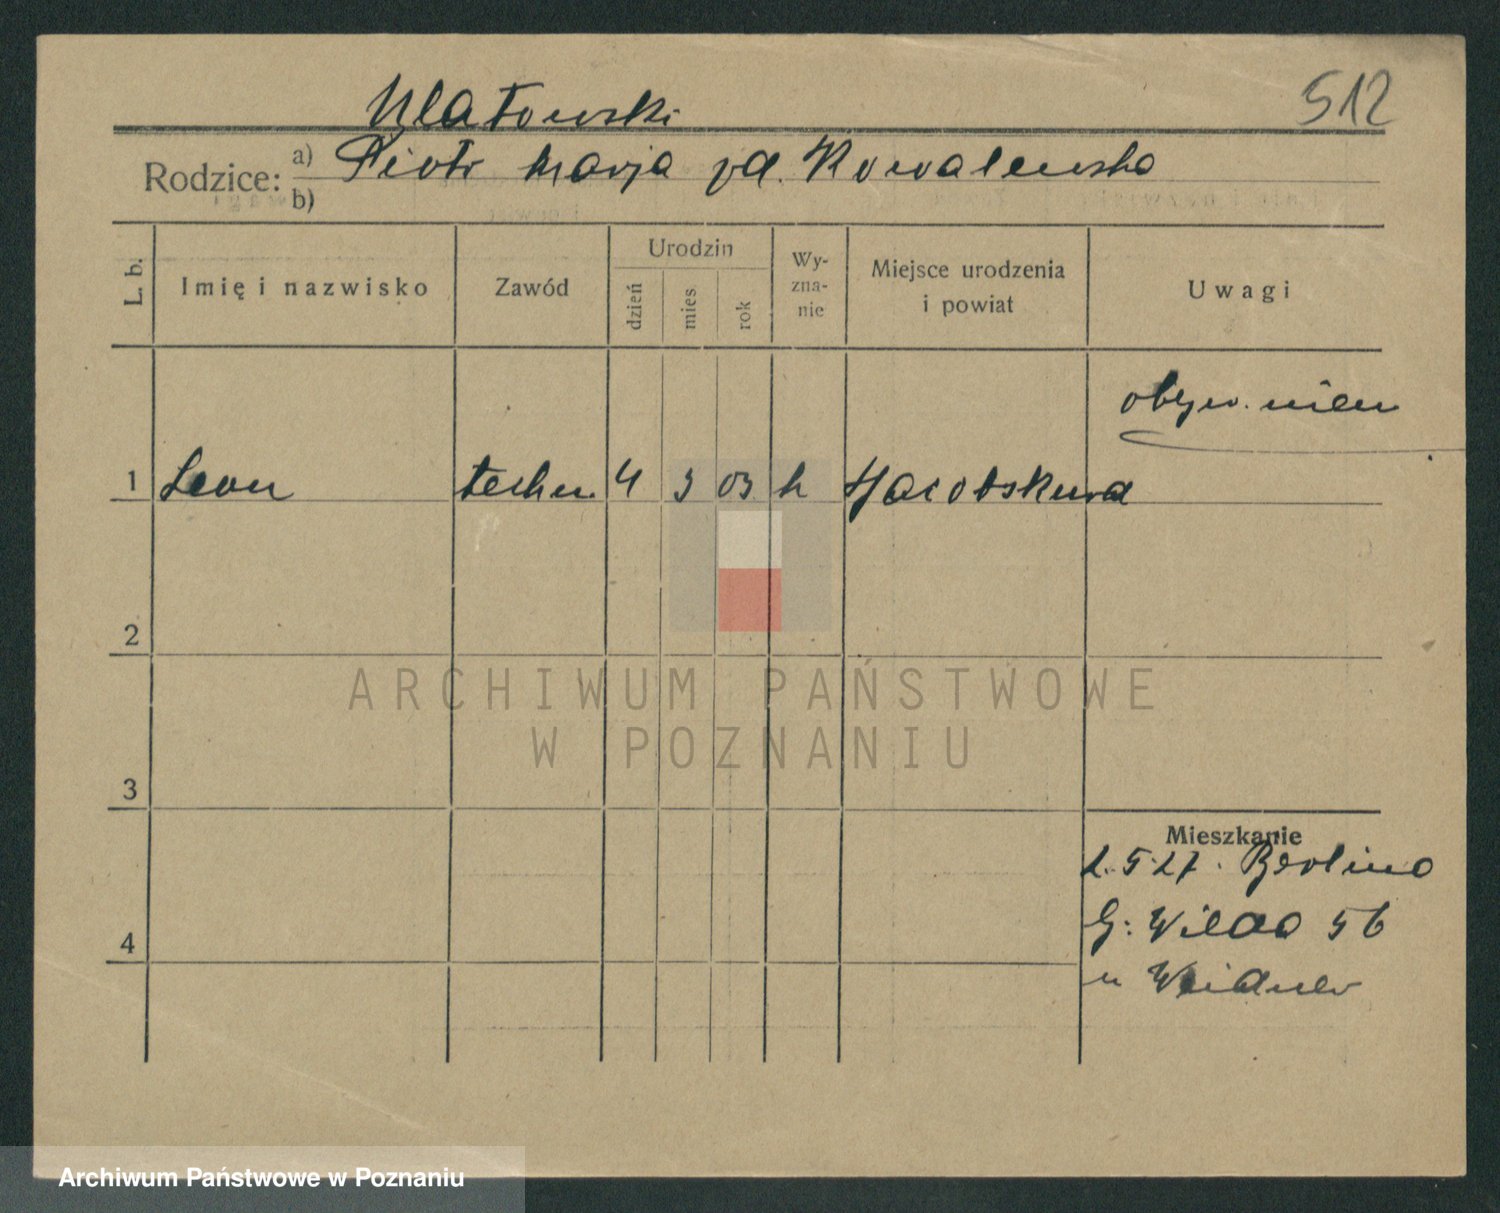 Ulatowski
512
Rodzice:
a) Piotr Marja zd. Kowalewska
b)
L. b.
Imię i nazwisko
Zawód
Urodzin
dzień
mies
rok
Wy-
zna-
nie
Miejsce urodzenia
i powiat
Uwagi
obyw. niem
1 Leon techn. 4 3 03 k
2
3
4
Mieszkanie
2. 5 27. Berlina
G: Wilda 56
u Weidner
ARCHIWUM PAŃSTWOWE
W POZNANIU
Archiwum Państwowe w Poznaniu